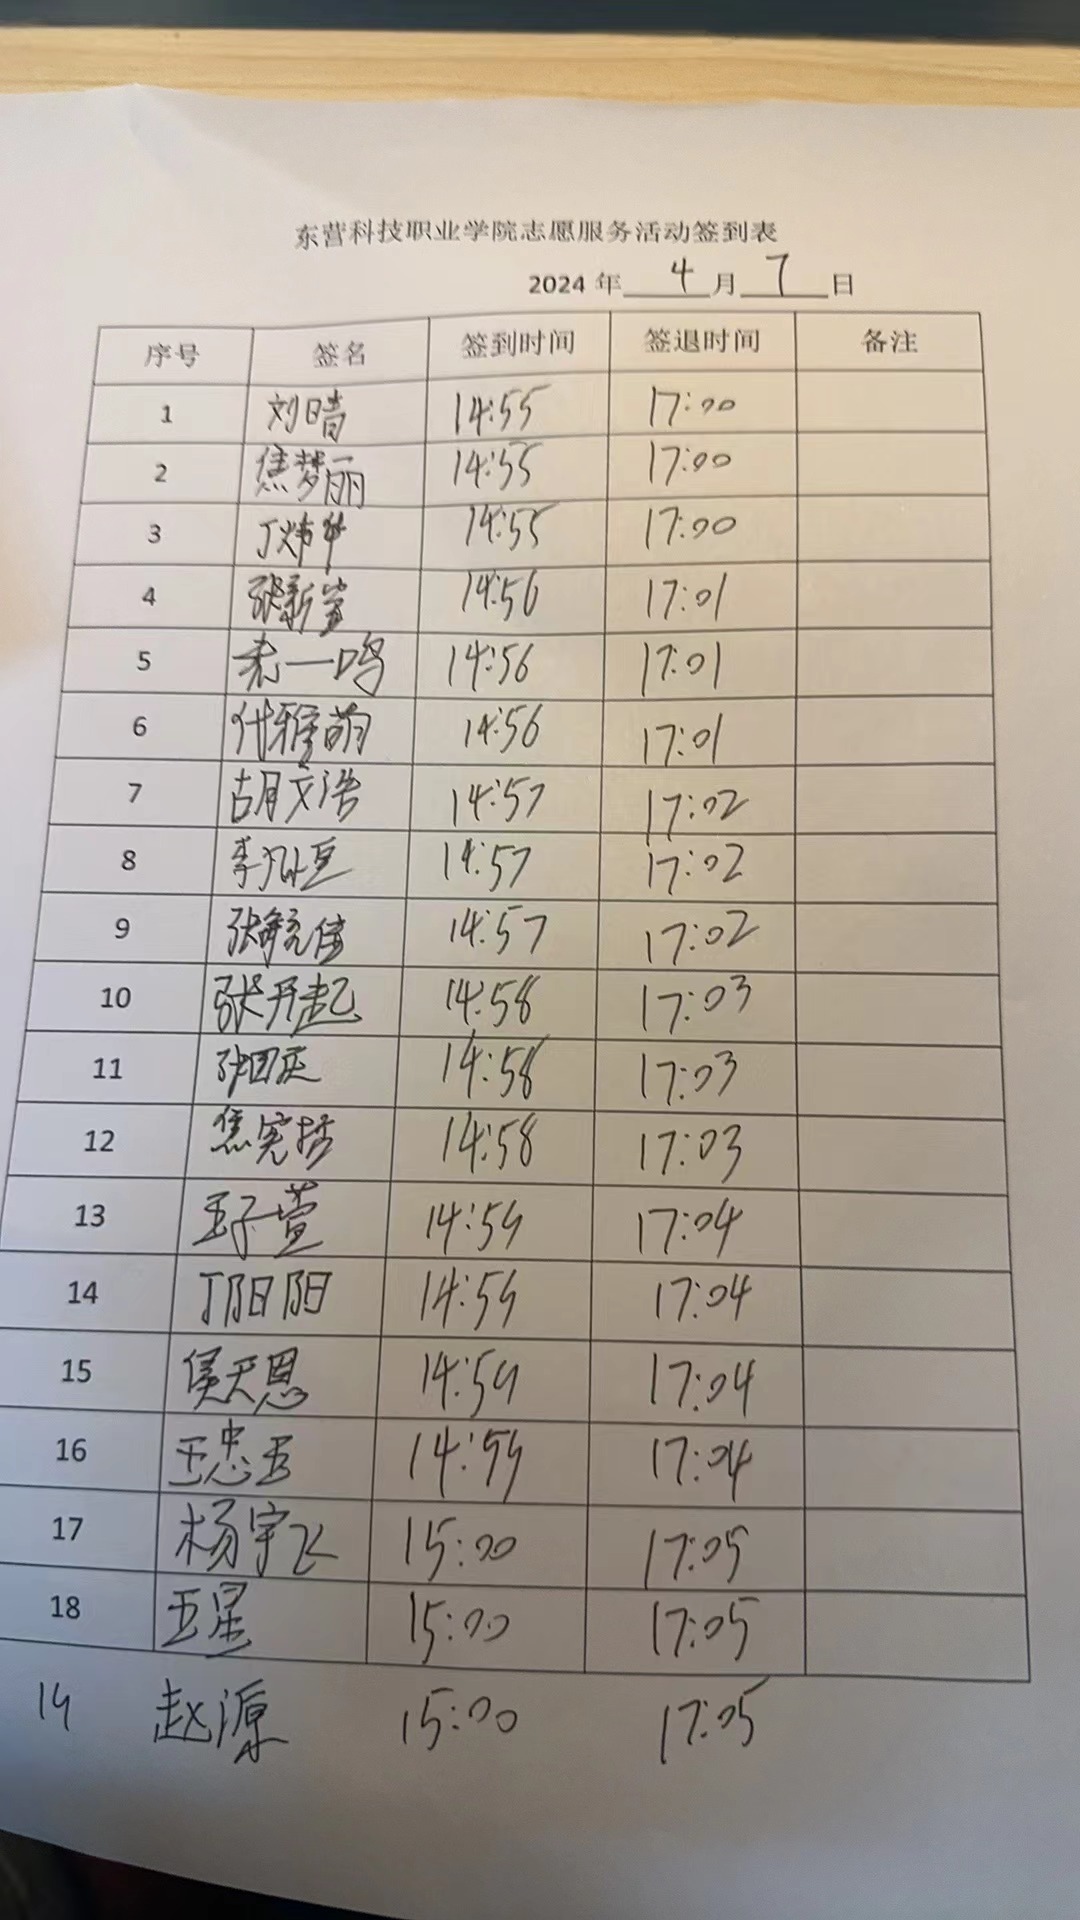 东营科技职业学院志愿服务活动签到表
2024 年 4 月 7 日
序号 签名 签到时间 签退时间 备注
1 刘晴 14:55 17:00
2 焦梦丽 14:55 17:00
3 丁炜华 14:55 17:00
4 张新 14:56 17:01
5 一鸣 14:56 17:01
6 付雅萌 14:56 17:01
7 胡文浩 14:57 17:02
8 李 14:57 17:02
9 张 14:57 17:02
10 张开起 14:58 17:03
11 张国庆 14:58 17:03
12 焦宪哲 14:58 17:03
13 王子萱 14:59 17:04
14 丁阳阳 14:59 17:04
15 侯天恩 14:59 17:04
16 王忠玉 14:59 17:04
17 杨宇飞 15:00 17:05
18 王星 15:00 17:05
19 赵源 15:00 17:05